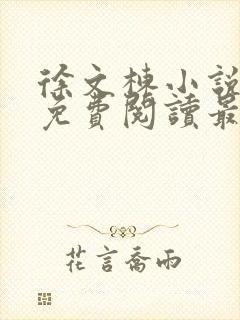 徐文棟小說
免費閱讀最
花言喬雨